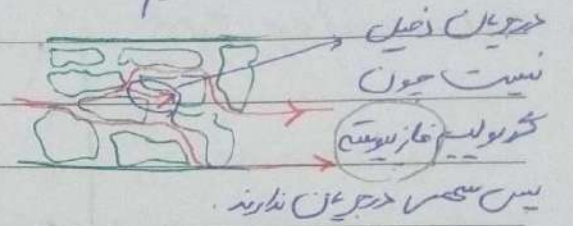 در جریان دخیل
نیست چون
گفتیم فاز پیوسته
پس سهمی در جریان ندارند.